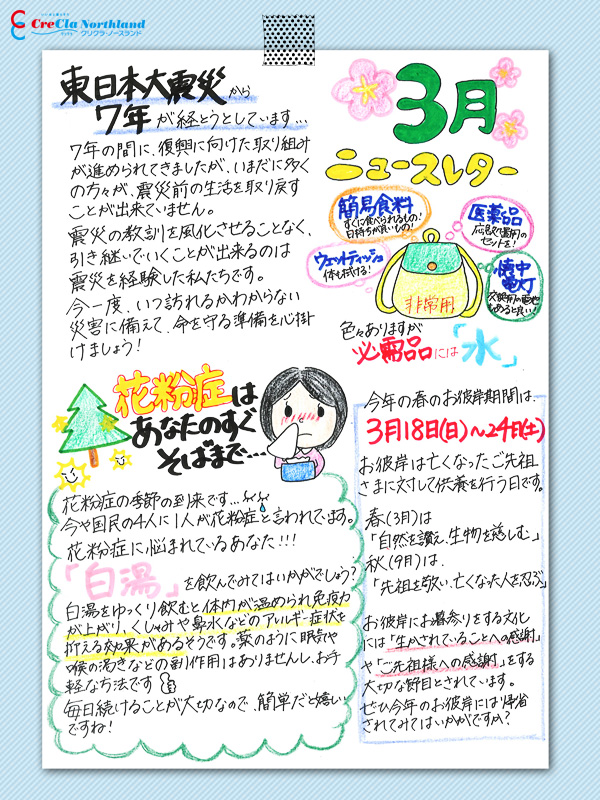 CreCla Northland
クリクラ・ノースランド
東日本大震災から
7年が経とうとしています…
7年の間に、復興に向けた取り組み
が進められてきましたが、いまだに多く
の方々が、震災前の生活を取り戻す
ことが出来ていません。
震災の教訓を風化させることなく、
引き継いでいくことが出来るのは
震災を経験した私たちです。
今一度、いつ訪れるかわからない
災害に備えて、命を守る準備を心掛
けましょう!
3月
ニュースレター
簡易食料
すぐに食べられるもの!
日持ちが良いもの!
医薬品
応急処置用の
セットを!
ウェットティッシュ
体も拭ける!
懐中
電灯
あると良い!
非常用
色々ありますが
必需品には「水」
花粉症は
あなたのすぐ
そばまで…
花粉症の季節の到来です…
今や国民の4人に1人が花粉症と言われてます。
花粉症に悩まれているあなた!!!
「白湯」を飲んでみてはいかがでしょう?
白湯をゆっくり飲むと体内が温められ免疫力
が上がり、くしゃみや鼻水などのアレルギー症状を
抑える効果があるそうです。薬のように眠気や
喉の渇きなどの副作用はありませんし、お手
軽な方法です
毎日続けることが大切なので、簡単だと嬉しい
ですね!
今年の春のお彼岸期間は、
3月18日(日)~24日(土)
お彼岸は亡くなったご先祖
さまに対して供養を行う日です。
春(3月)は
「自然を讃え、生物を慈しむ」
秋(9月)は、
「先祖を敬い、亡くなった人を忍ぶ」
お彼岸にお墓参りをする文化
には「生かされていることへの感謝」
や「ご先祖様への感謝」をする
大切な節目とされています。
ぜひ今年のお彼岸には帰省
されてみてはいかがですか?